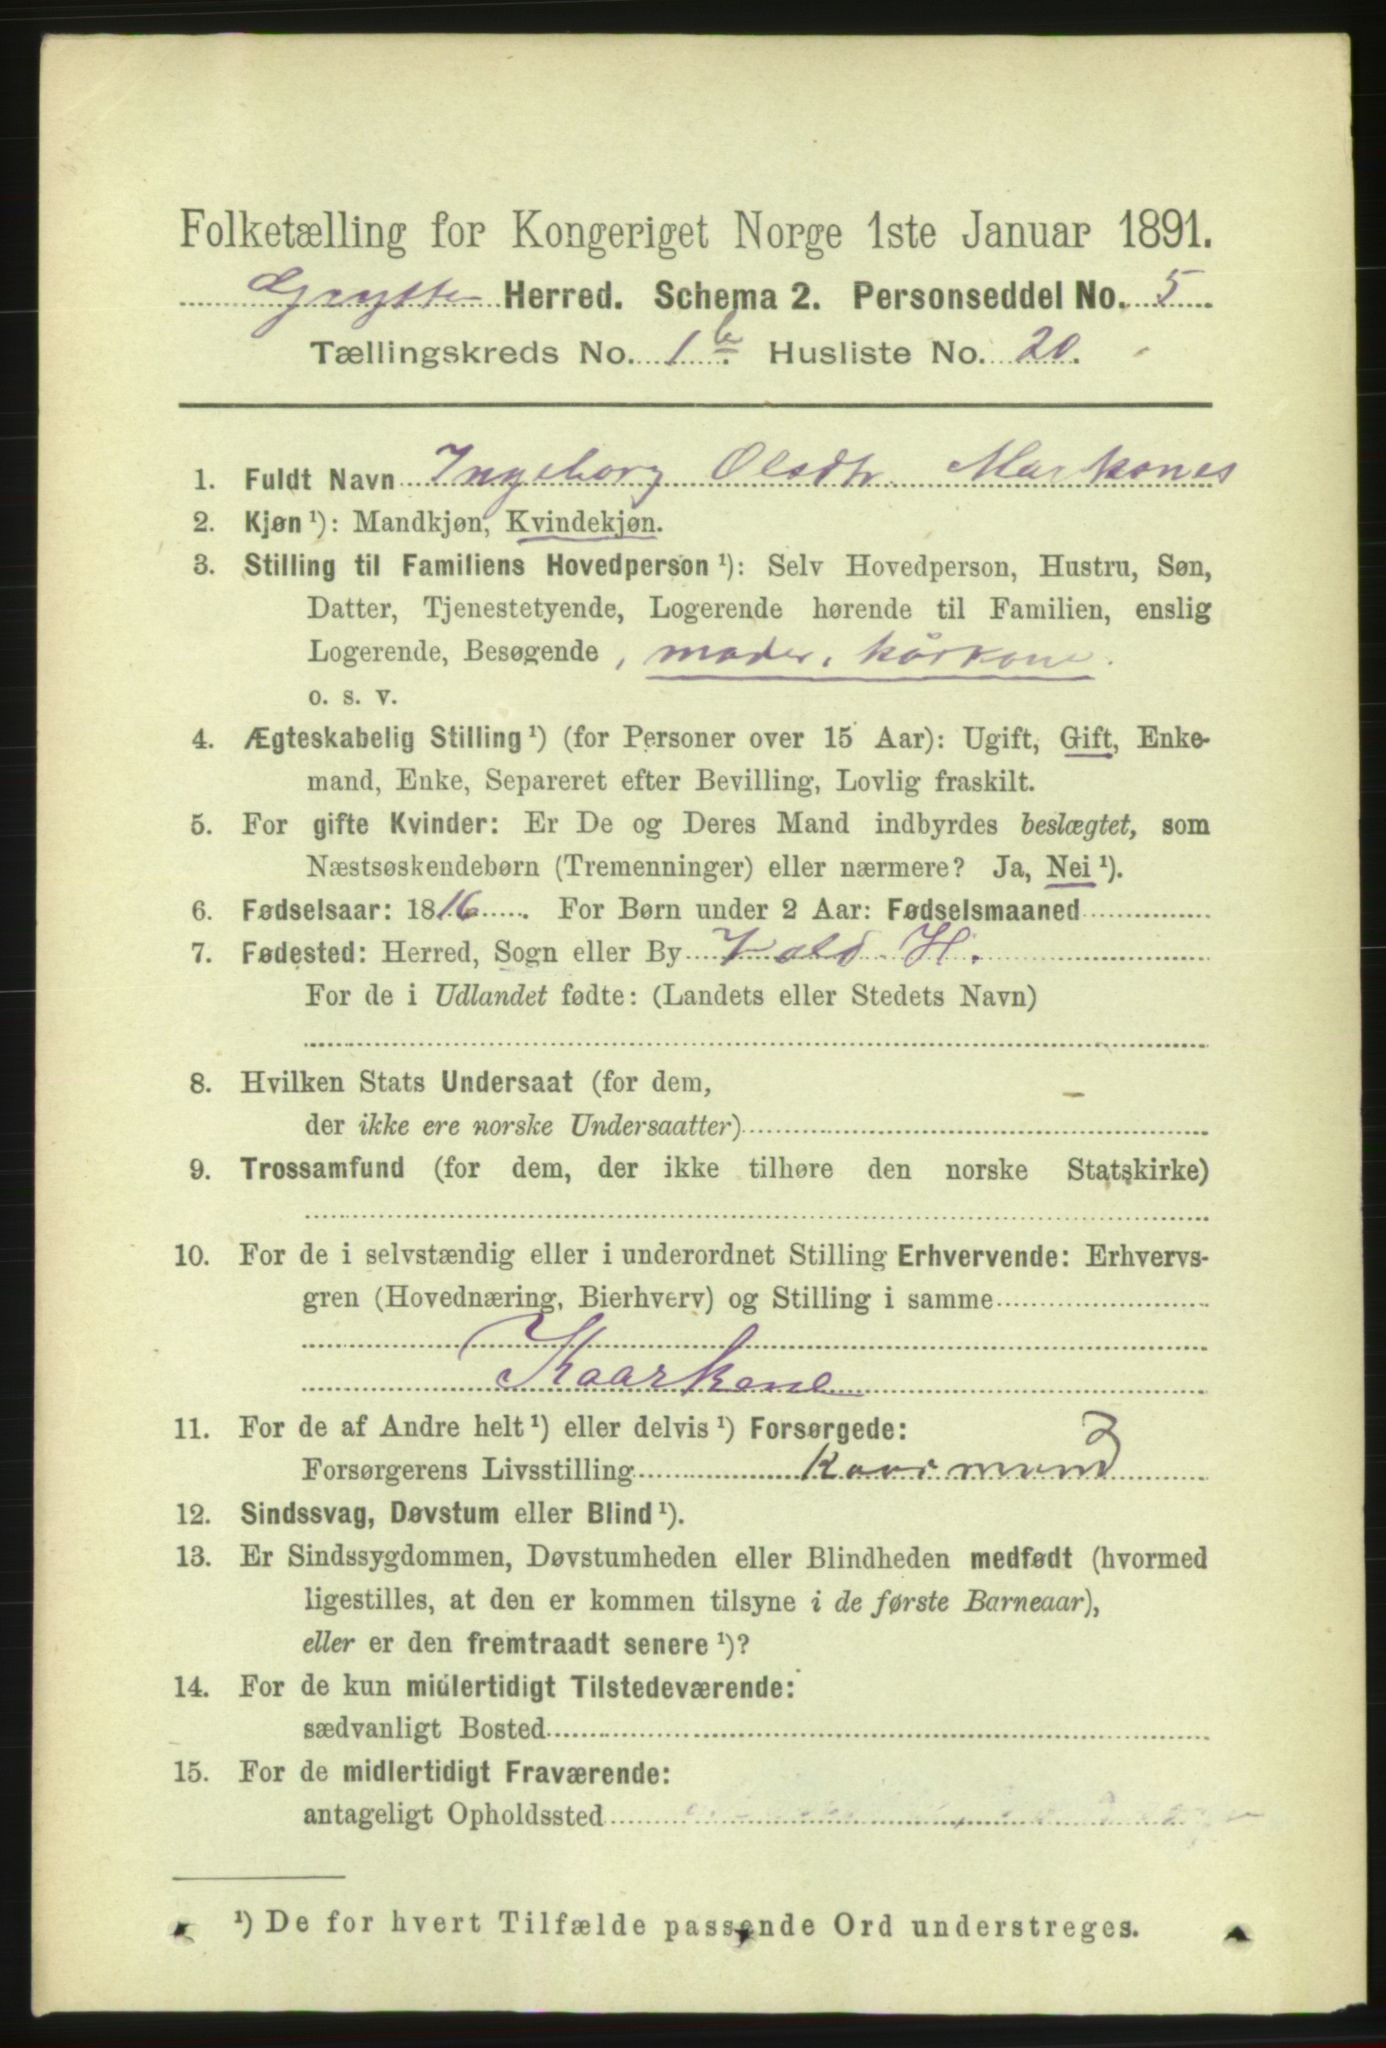 Folketælling for Kongeriget Norge 1ste Januar 1891.
Grytten Herred. Schema 2. Personseddel No. 5
Tællingskreds No. 1b. Husliste No. 20.
1. Fuldt Navn Ingeborg Olsdtr. Markones
2. Kjøn ¹): Mandkjøn, Kvindekjøn.
3. Stilling til Familiens Hovedperson ¹): Selv Hovedperson, Hustru, Søn,
Datter, Tjenestetyende, Logerende hørende til Familien, enslig
Logerende, Besøgende, moder, kårkone.
o. s. v.
4. Ægteskabelig Stilling ¹) (for Personer over 15 Aar): Ugift, Gift, Enke-
mand, Enke, Separeret efter Bevilling, Lovlig fraskilt.
5. For gifte Kvinder: Er De og Deres Mand indbyrdes beslægtet, som
Næstsøskendebørn (Tremenninger) eller nærmere? Ja, Nei ¹).
6. Fødselsaar: 1816. For Børn under 2 Aar: Fødselsmaaned
7. Fødested: Herred, Sogn eller By Vold H.
For de i Udlandet fødte: (Landets eller Stedets Navn)
8. Hvilken Stats Undersaat (for dem,
der ikke ere norske Undersaatter)
9. Trossamfund (for dem, der ikke tilhøre den norske Statskirke)
10. For de i selvstændig eller i underordnet Stilling Erhvervende: Erhvervs-
gren (Hovednæring, Bierhverv) og Stilling i samme
Kaarkone
11. For de af Andre helt ¹) eller delvis ¹) Forsørgede:
Forsørgerens Livsstilling Kaarmand
12. Sindssvag, Døvstum eller Blind ¹).
13. Er Sindssygdommen, Døvstumheden eller Blindheden medfødt (hvormed
ligestilles, at den er kommen tilsyne i de første Barneaar),
eller er den fremtraadt senere ¹)?
14. For de kun midlertidigt Tilstedeværende:
sædvanligt Bosted
15. For de midlertidigt Fraværende:
antageligt Opholdssted
¹) De for hvert Tilfælde passende Ord understreges.